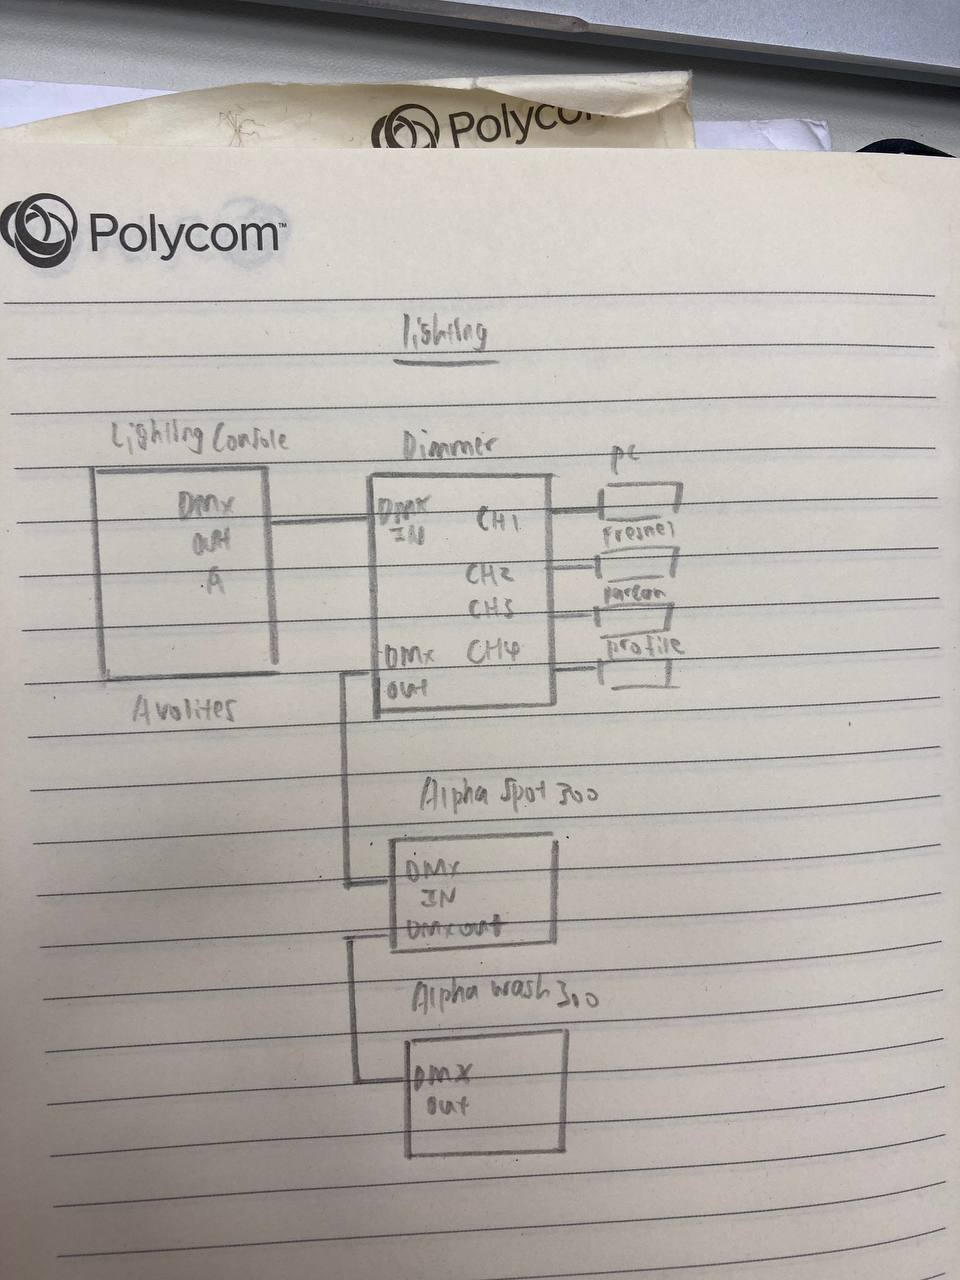 Polycom
Polycom™
lighting
Lighting Console
DMX
out
A
Avolites
Dimmer
DMX
IN
CH1
CH2
CH3
CH4
DMX
out
pc
Fresnel
parcan
profile
Alpha Spot 300
DMX
IN
DMX out
Alpha wash 300
DMX
out